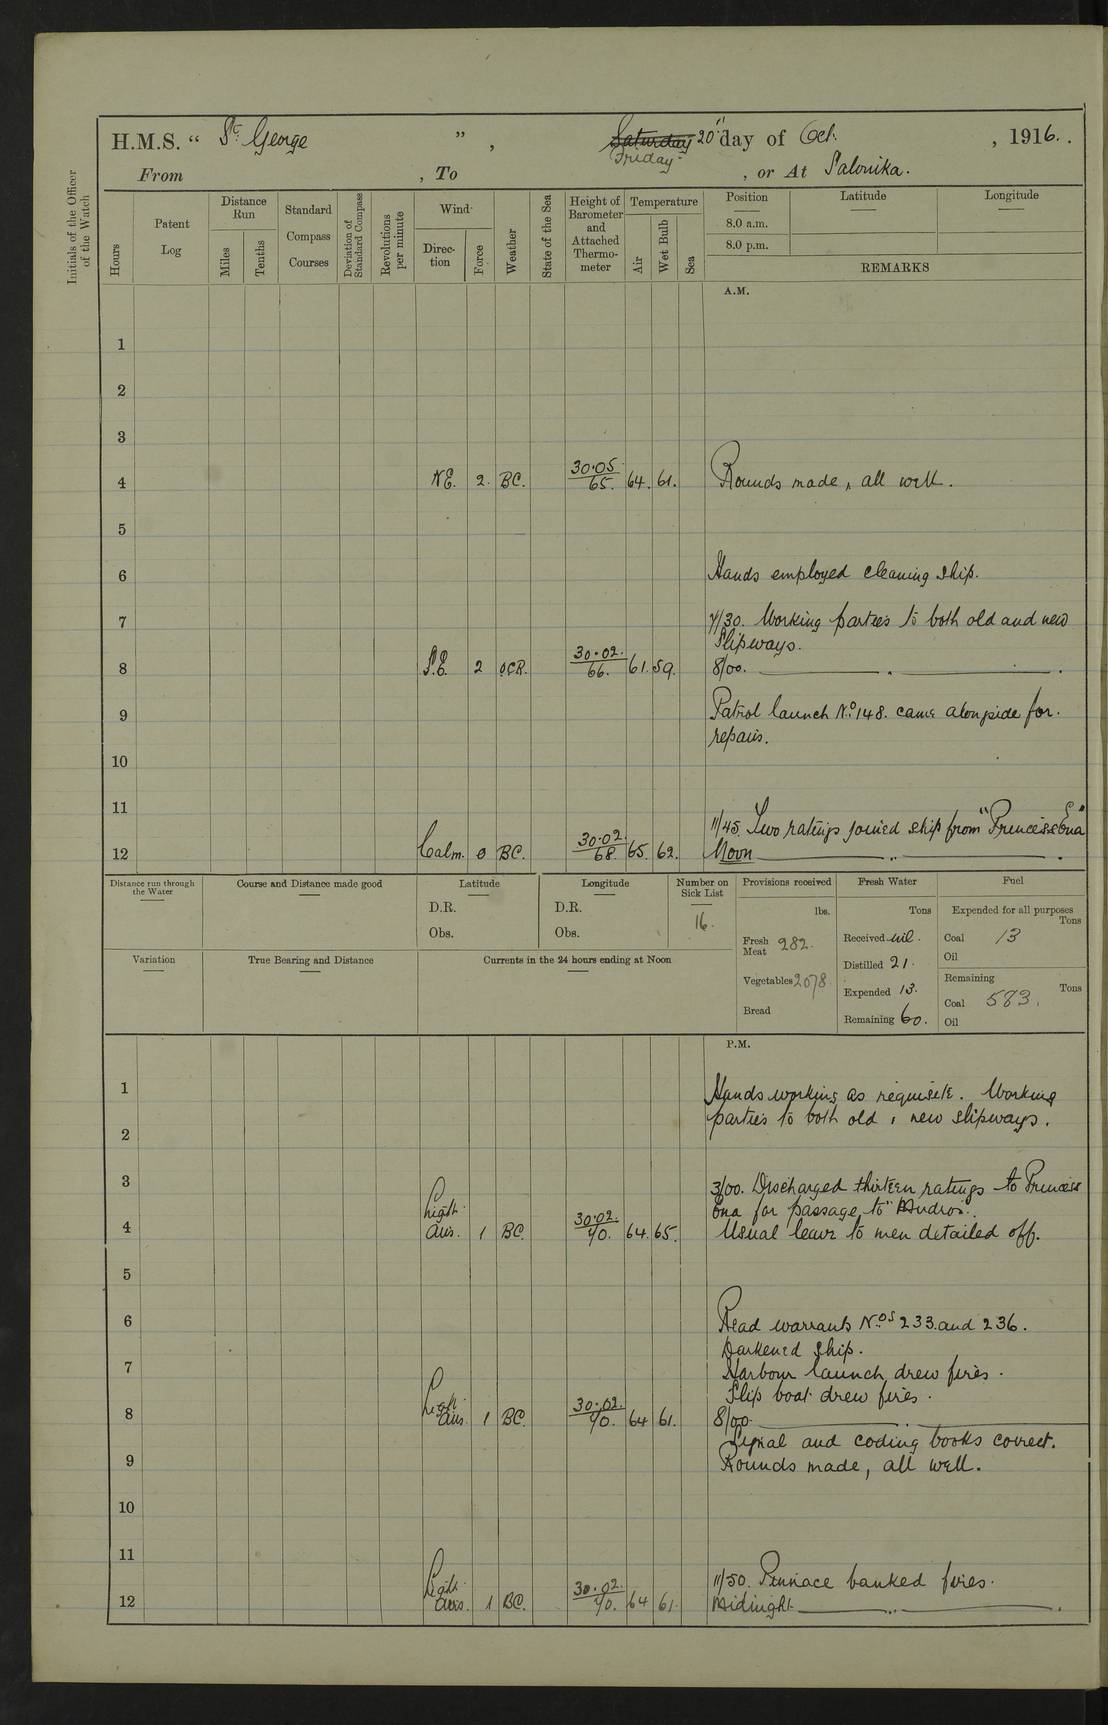 H.M.S. “ St. George ” , Saturday 20th day of Oct. , 1916.
Friday
From , To , or At Salonika.
Initials of the Officer of the Watch
Hours
Patent Log
Distance Run
Miles
Tenths
Standard Compass Courses
Deviation of Standard Compass
Revolutions per minute
Wind
Direction
Force
Weather
State of the Sea
Height of Barometer and Attached Thermometer
Temperature
Air
Wet Bulb
Sea
Position
8.0 a.m.
8.0 p.m.
Latitude
Longitude
REMARKS
A.M.
1
2
3
4 NE. 2. BC. 30.05 65. 64. 61. Rounds made, all well.
5
6 Hands employed cleaning ship.
7 7/30. Working parties to both old and new
Slipways.
8 S.E. 2 OCR. 30.02. 66. 61. 59. 8/00.
9 Patrol launch No. 148. came alongside for
repairs.
10
11 11/45. Two ratings joined ship from "Princess Ena"
12 Calm. 0 BC. 30.02. 68. 65. 62. Noon
Distance run through the Water
Course and Distance made good
Latitude
D.R.
Obs.
Longitude
D.R.
Obs.
Number on Sick List
16.
Provisions received
lbs.
Fresh Meat 282.
Vegetables 2078
Bread
Fresh Water
Tons
Received nil.
Distilled 21.
Expended 13.
Remaining 60.
Fuel
Expended for all purposes
Tons
Coal 13
Oil
Remaining
Tons
Coal 583.
Oil
Variation
True Bearing and Distance
Currents in the 24 hours ending at Noon
P.M.
1 Hands working as requisite. Working
2 parties to both old & new slipways.
3 3/00. Discharged thirteen ratings to Princess
Ena for passage to Mudros.
4 Light airs. 1 BC. 30.02. 70. 64. 65. Usual leave to men detailed off.
5
6 Read warrants Nos 233. and 236.
Darkened ship.
7 Harbour launch drew fires.
Slip boat drew fires.
8 Light airs 1 BC. 30.02. 70. 64 61. 8/00.
Signal and coding books correct.
9 Rounds made, all well.
10
11 11/50. Pinnace banked fires.
12 Light airs. 1 BC. 30.02. 70. 64 61. Midnight